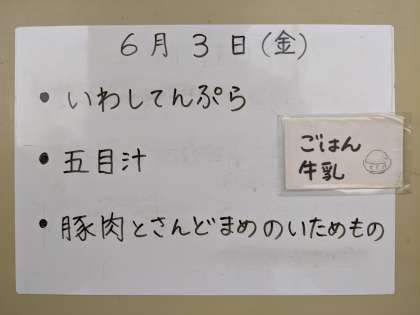 6月3日(金)
• いわしてんぷら
• 五目汁
ごはん
牛乳
• 豚肉とさんどまめのいためもの